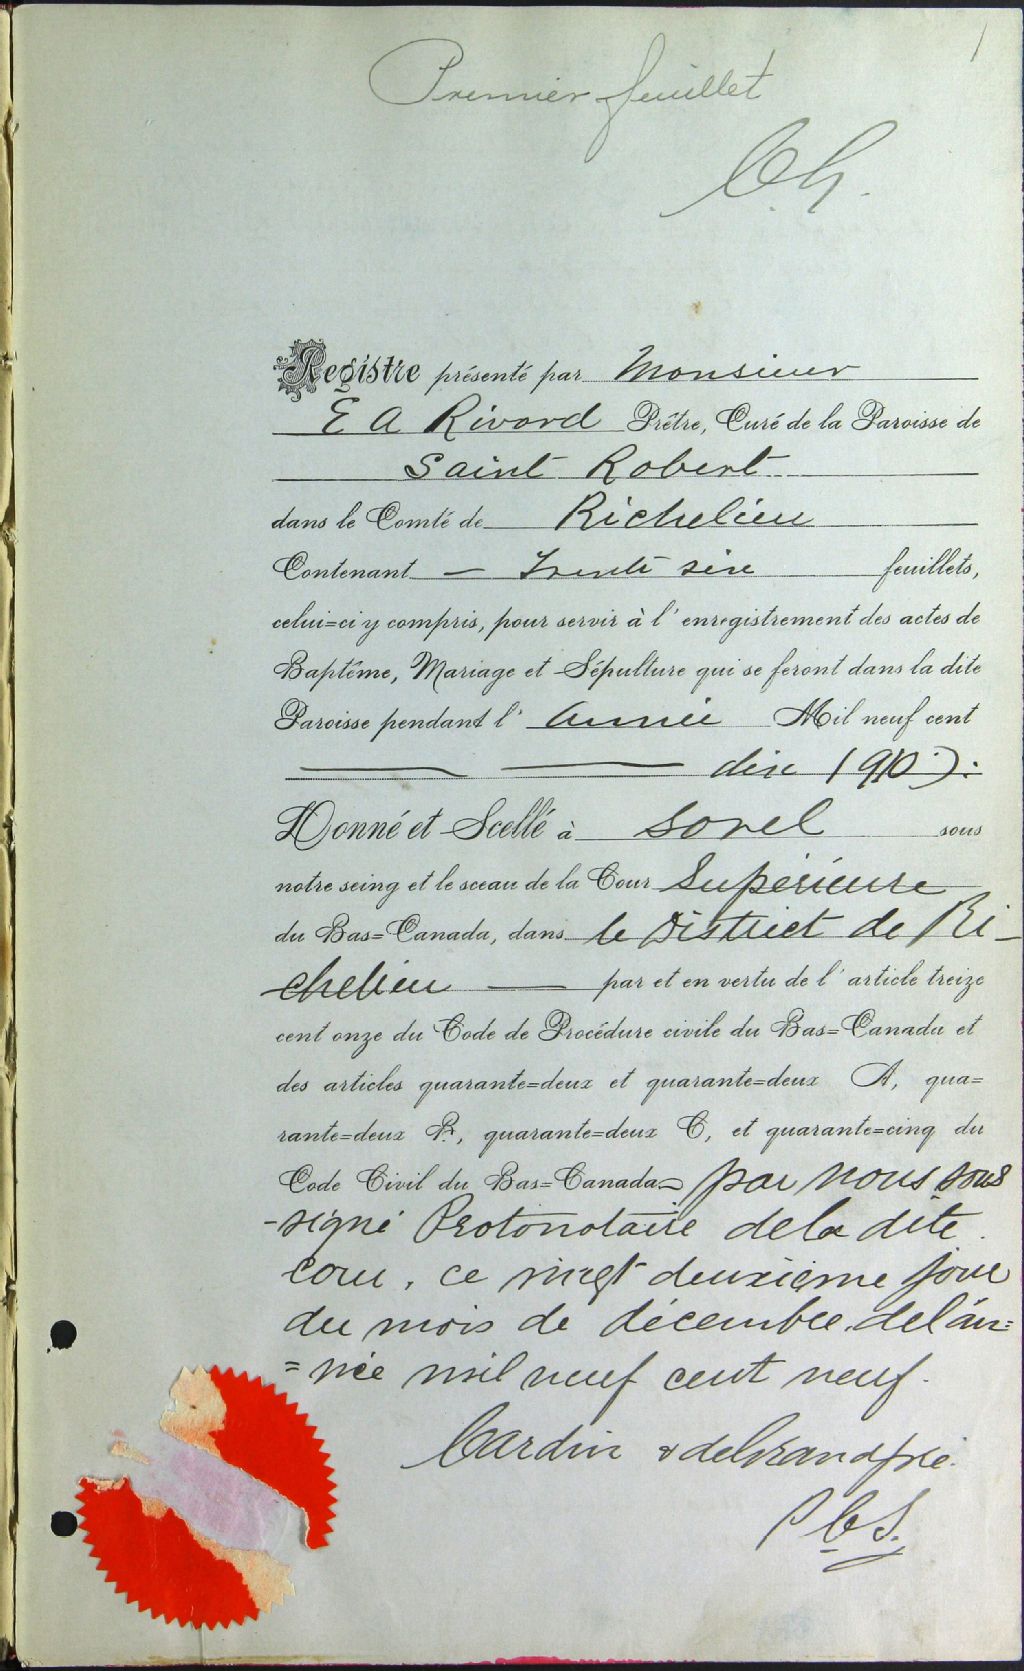 1
Premier feuillet
Ch.
Registre présenté par Monsieur
E A Rivard Prêtre, Curé de la Paroisse de
Saint Robert
dans le Comté de Richelieu
Contenant — Trente six feuillets,
celui=ci y compris, pour servir à l'enregistrement des actes de
Baptême, Mariage et Sépulture qui se feront dans la dite
Paroisse pendant l'année Mil neuf cent
dix (1910):
Donné et Scellé à Sorel sous
notre seing et le sceau de la Cour Supérieure
du Bas=Canada, dans le District de Ri-
chelieu — par et en vertu de l'article treize
cent onze du Code de Procédure civile du Bas=Canada et
des articles quarante=deux et quarante=deux A, qua=
rante=deux B, quarante=deux C, et quarante=cinq du
Code Civil du Bas=Canada= par nous sous
-signé Protonotaire de la dite
cour, ce vingt deuxième jour
du mois de décembre, de l'an=
=née mil neuf cent neuf.
Cardin & deGrandpré.
P C S.